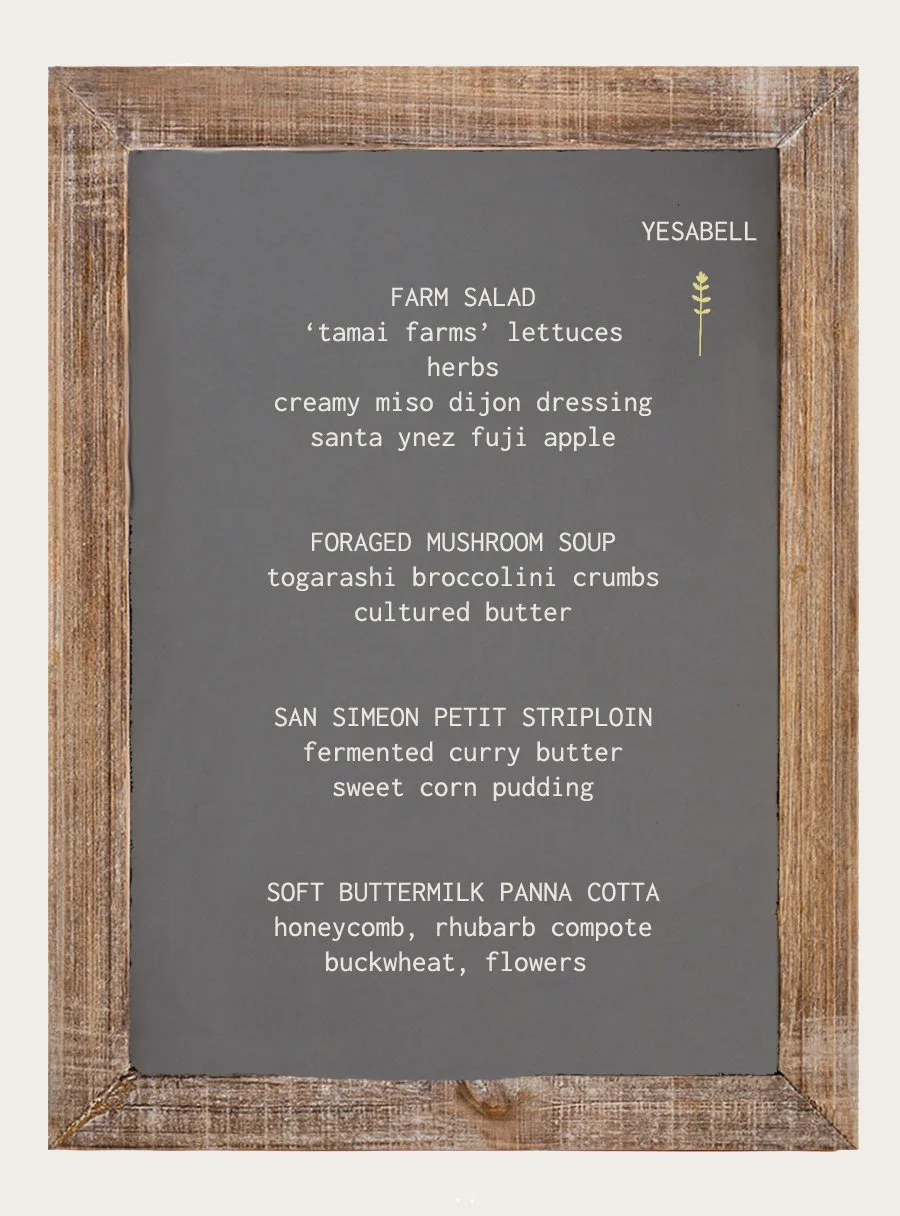 YESABELL
FARM SALAD
‘tamai farms’ lettuces
herbs
creamy miso dijon dressing
santa ynez fuji apple
FORAGED MUSHROOM SOUP
togarashi broccolini crumbs
cultured butter
SAN SIMEON PETIT STRIPLOIN
fermented curry butter
sweet corn pudding
SOFT BUTTERMILK PANNA COTTA
honeycomb, rhubarb compote
buckwheat, flowers